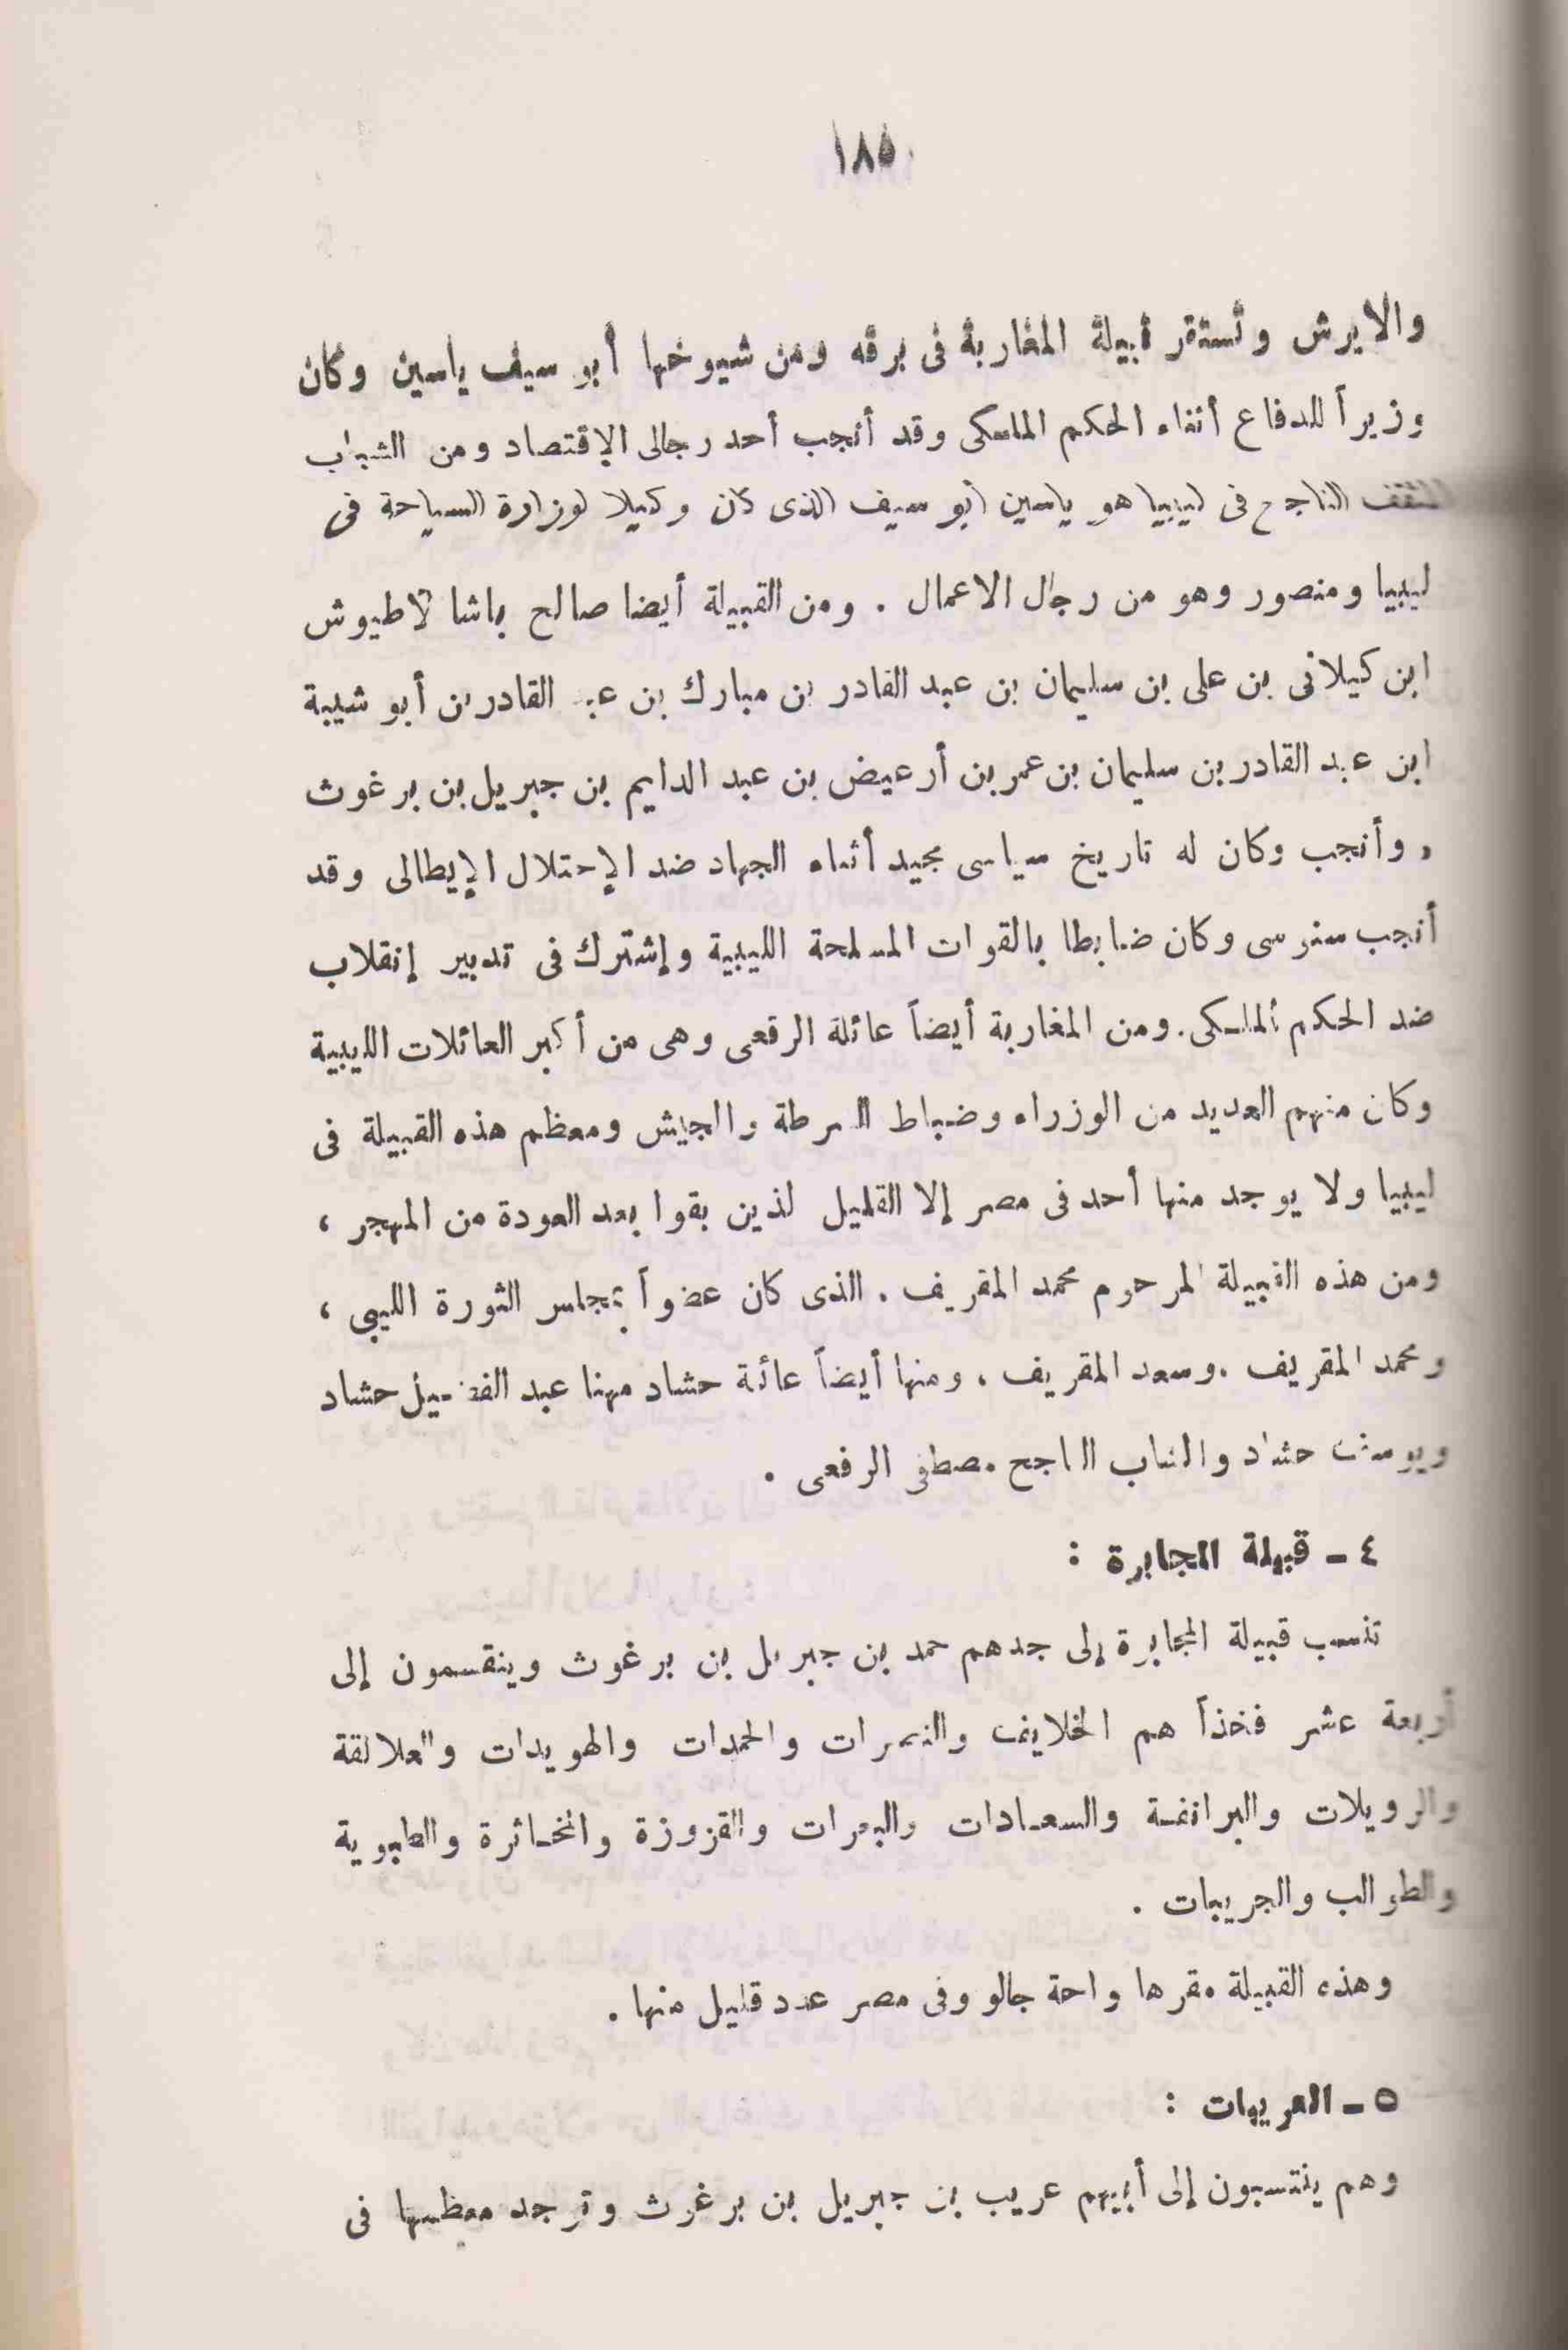 ١٨٥
والايرش وتستقر قبيلة المغاربة فى برقه ومن شيوخها أبو سيف ياسين وكان
وزيراً للدفاع أثناء الحكم الملكى وقد أنجب أحد رجالى الإقتصاد ومن الشباب
المثقف الناجح فى ليبيا هو ياسين أبو سيف الذى كان وكيلا لوزارة السياحة فى
ليبيا ومنصور وهو من رجال الاعمال . ومن القبيلة أيضا صالح باشا لاطيوش
ابن كيلانى بن على بن سليمان بن عبد القادر بن مبارك بن عبد القادر بن أبو شيبة
ابن عبد القادر بن سليمان بن عمر بن أرعيض بن عبد الدايم بن جبريل بن برغوث
، وأنجب وكان له تاريخ سياسى مجيد أثناء الجهاد ضد الإحتلال الإيطالى وقد
أنجب سنوسى وكان ضابطا بالقوات المسلحة الليبية وإشترك فى تدبير إنقلاب
ضد الحكم الملكى . ومن المغاربة أيضاً عائلة الرقعى وهى من أكبر العائلات الليبية
وكان منهم العديد من الوزراء وضباط الشرطة والجيش ومعظم هذه القبيلة فى
ليبيا ولا يوجد منها أحد فى مصر إلا القليل لذين بقوا بعد العودة من المهجر ،
ومن هذه القبيلة المرحوم محمد المقريف . الذى كان عضواً بمجلس الثورة الليبى ،
ومحمد المقريف . وسعد المقريف ، ومنها أيضاً عائة حشاد مهنا عبد الفضيل حشاد
ويوسف حشاد والشاب الناجح مصطفى الرفعى .
٤ - قبيلة المجابرة :
تنسب قبيلة المجابرة إلى جدهم حمد بن جبريل بن برغوث وينقسمون إلى
أربعة عشر فخذاً هم الخلايف والنمرات والحمدات والهويدات والعلالقة
والرويلات والبرانفسة والسعادات والبمرات والقزوزة والخائرة والطبوية
والطوالب والجريبات .
وهذه القبيلة مقرها واحة جالو وفى مصر عدد قليل منها .
٥ - العريبات :
وهم ينتسبون إلى أبيهم عريب بن جبريل بن برغوث وتوجد معظمها فى